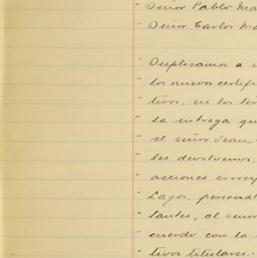 - Señor Pablo Ma
- Señor Carlos Ma
- Duplicamos a u
- los nuevos certifi
- tivos, en los tér
- la entrega qu
- el señor Jean
- les devolvemos.
- acciones corres
- Lagos, personal
- lantes, al señor
- cuerdo con la
- tivos titulares.-